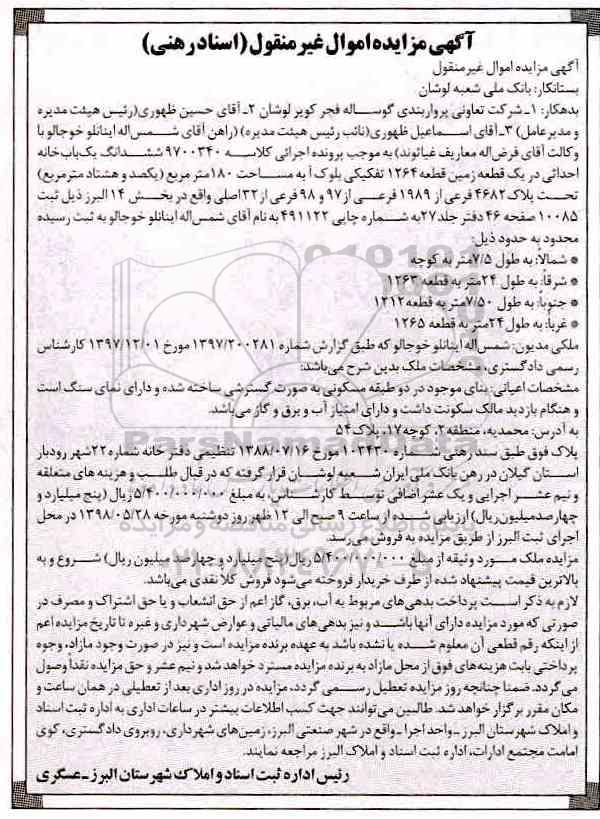 آگهی مزایده اموال غیر منقول (اسناد رهنی)
آگهی مزایده اموال غیر منقول
بستانکار: بانک ملی شعبه لوشان
بدهکار: ۱ـ شرکت تعاونی پرواربندی گوساله فجر کویر لوشان ۲ـ آقای حسین ظهوری(رئیس هیئت مدیره
و مدیر عامل) ۳ـ آقای اسماعیل ظهوری(نائب رئیس هیئت مدیره) (راهن آقای شمس‌اله اینانلو خوجالو با
وکالت آقای فرض‌اله معاریف غیائوند) به موجب پرونده اجرائی کلاسه ۹۷۰۰۳۴۰ ششدانگ یک‌باب‌خانه
احداثی در یک قطعه زمین قطعه ۱۲۶۴ تفکیکی بلوک آ به مساحت ۱۸۰متر مربع (یکصد و هشتاد مترمربع)
تحت پلاک ۴۶۸۲ فرعی از ۱۹۸۹ فرعی از ۹۷ و ۹۸ فرعی از ۳۲ اصلی واقع در بخش ۱۴ البرز ذیل ثبت
۱۰۰۸۵ صفحه ۴۶ دفتر جلد ۲۷ به شماره چاپی ۴۹۱۱۲۲ به نام آقای شمس‌اله اینانلو خوجالو به ثبت رسیده
محدود به حدود ذیل:
* شمالاً: به طول ۷/۵متر به کوچه
* شرقاً: به طول ۲۴متر به قطعه ۱۲۶۳
* جنوباً: به طول ۷/۵۰متر به قطعه ۱۲۱۲
* غرباً: به طول ۲۴متر به قطعه ۱۲۶۵
ملکی مدیون: شمس‌اله اینانلو خوجالو که طبق گزارش شماره ۱۳۹۷/۲۰۰۲۸۱ مورخ ۱۳۹۷/۱۲/۰۱ کارشناس
رسمی دادگستری، مشخصات ملک بدین شرح می‌باشد:
مشخصات اعیانی: بنای موجود در دو طبقه مسکونی به صورت گسترشی ساخته شده و دارای نمای سنگ است
و هنگام بازدید مالک سکونت داشت و دارای امتیاز آب و برق و گاز می‌باشد.
به آدرس: محمدیه، منطقه۲، کوچه۱۷، پلاک۵۴
پلاک فوق طبق سند رهنی شماره ۱۰۳۴۳۰ مورخ ۱۳۸۸/۰۷/۱۶ تنظیمی دفتر خانه شماره ۲۲شهر رودبار
استان گیلان در رهن بانک ملی ایران شعبه لوشان قرار گرفته که در قبال طلب و هزینه های متعلقه
و نیم عشر اجرایی و یک عشر اضافی توسط کارشناس، به مبلغ ۵/۴۰۰/۰۰۰/۰۰۰ ریال (پنج میلیارد و
چهارصدمیلیون‌ریال) ارزیابی شده از ساعت ۹ صبح الی ۱۲ ظهر روز دوشنبه مورخه ۱۳۹۸/۰۵/۲۸ در محل
اجرای ثبت البرز از طریق مزایده به فروش می‌رسد.
مزایده ملک مورد وثیقه از مبلغ ۵/۴۰۰/۰۰۰/۰۰۰ ریال(پنج میلیارد و چهارصد میلیون ریال) شروع و به
بالاترین قیمت پیشنهاد شده از طرف خریدار فروخته می‌شود فروش کلا نقدی می‌باشد.
لازم به ذکر است پرداخت بدهی‌های مربوط به آب، برق، گاز اعم از حق انشعاب و یا حق اشتراک و مصرف در
صورتی که مورد مزایده دارای آنها باشد و نیز بدهی‌های مالیاتی و عوارض شهرداری و غیره تا تاریخ مزایده اعم
از اینکه رقم قطعی آن معلوم شده یا نشده باشد به عهده برنده مزایده است و نیز در صورت وجود مازاد، وجوه
پرداختی بابت هزینه‌های فوق از محل مازاد به برنده مزایده مسترد خواهد شد و نیم عشر و حق مزایده نقداً وصول
می گردد. ضمنا چنانچه روز مزایده تعطیل رسمی گردد، مزایده در روز اداری بعد از تعطیلی در همان ساعت و
مکان مقرر برگزار خواهد شد. طالبین می‌توانند جهت کسب اطلاعات بیشتر در ساعات اداری به اداره ثبت اسناد
و املاک شهرستان البرز ـ واحد اجرا ـ واقع در شهر صنعتی البرز، زمین‌های شهرداری، روبروی دادگستری، کوی
امامت مجتمع ادارات، اداره ثبت اسناد و املاک البرز مراجعه نمایند.
رئیس اداره ثبت اسناد و املاک شهرستان البرز ـ عسگری
ParsNamadData